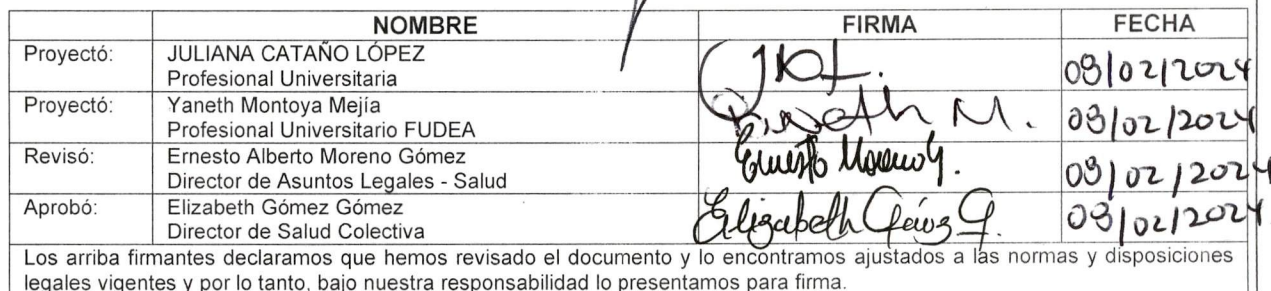 NOMBRE FIRMA FECHA
Proyectó: JULIANA CATAÑO LÓPEZ
Profesional Universitaria
09/02/2024
Proyectó: Yaneth Montoya Mejía
Profesional Universitario FUDEA
Yaneth M. 09/02/2024
Revisó: Ernesto Alberto Moreno Gómez
Director de Asuntos Legales - Salud
Ernesto Moreno G. 09/02/2024
Aprobó: Elizabeth Gómez Gómez
Director de Salud Colectiva
Elizabeth Gómez G. 09/02/2024
Los arriba firmantes declaramos que hemos revisado el documento y lo encontramos ajustados a las normas y disposiciones
legales vigentes y por lo tanto, bajo nuestra responsabilidad lo presentamos para firma.